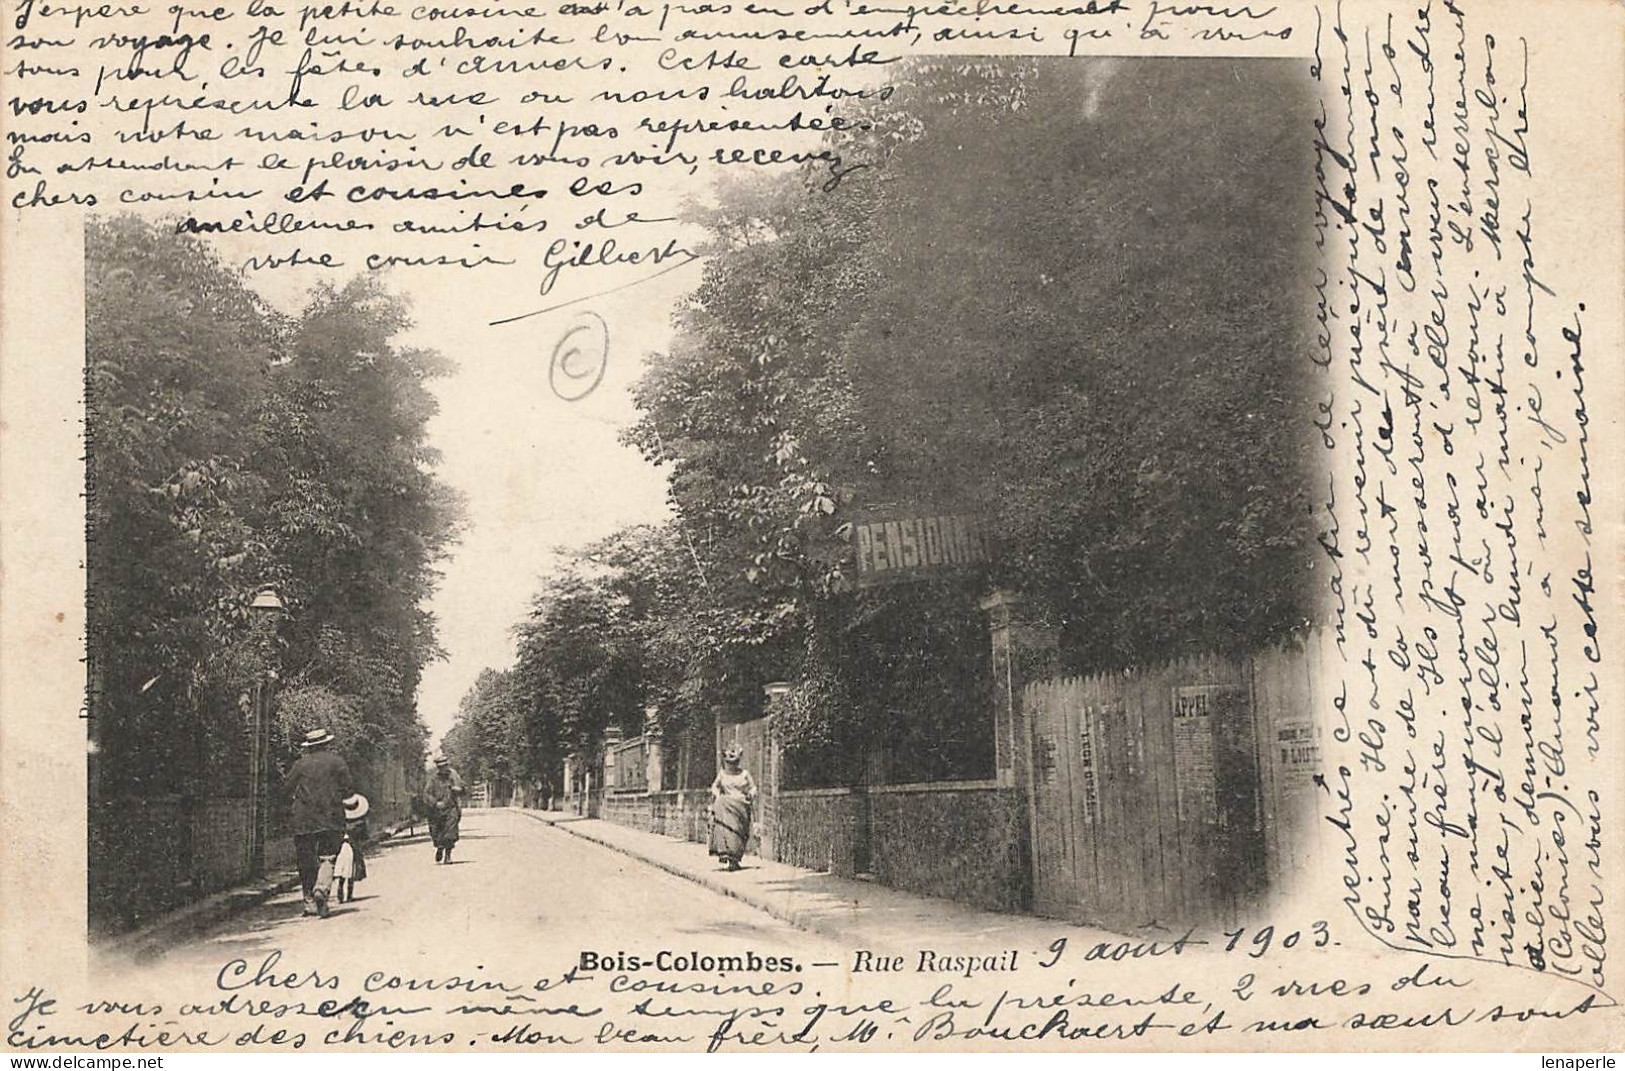 Bois-Colombes. — Rue Raspail
9 août 1903.
Chers cousin et cousines.
Je vous adresse en même temps que la présente, 2 vues du
cimetière des chiens. Mon beau frère, Mr Bouckaert et ma sœur sont
rentrés ce matin de leur voyage en
Suisse. Ils ont dû revenir précipitamment
par suite de la mort du père de mon
beau frère. Ils passeront à Anvers et
ne manqueront pas d'aller vous rendre
visite, à l'aller où au retour. L'enterrement
a lieu demain lundi matin à Merxplas
(Colonies). Quand à moi, je compte bien
aller vous voir cette semaine.
J'espère que la petite cousine n'a pas eu d'empêchement pour
son voyage. Je lui souhaite bon amusement, ainsi qu'à vous
tous pour les fêtes d'Anvers. Cette carte
vous représente la rue ou nous habitons
mais notre maison n'est pas représentée.
En attendant le plaisir de vous voir, recevez
chers cousin et cousines les
meilleures amitiés de
votre cousin Gilbert
©
PENSIONNAT
APPEL
lenaperle